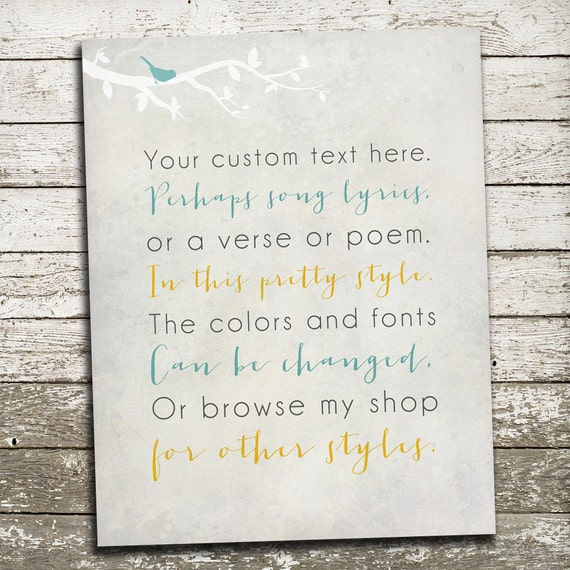 Your custom text here.
Perhaps song lyrics,
or a verse or poem.
In this pretty style.
The colors and fonts
Can be changed,
Or browse my shop
for other styles.